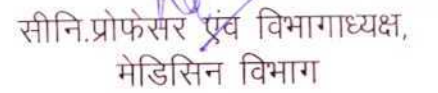 सीनि.प्रोफेसर एंव विभागाध्यक्ष,
मेडिसिन विभाग